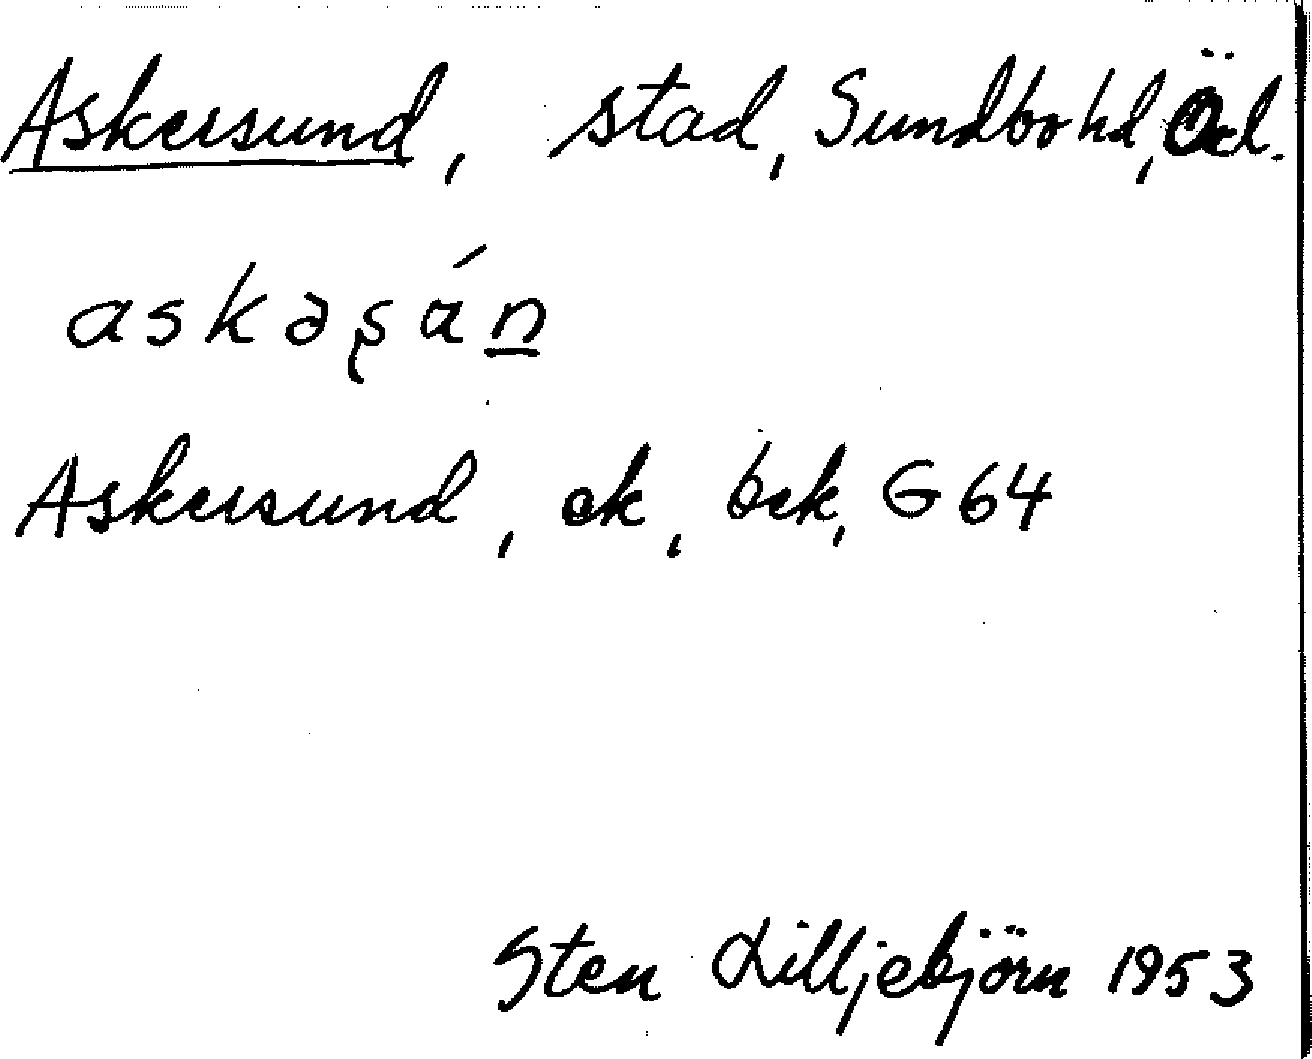 Askersund, stad, Sundbo hd, Öd.
askəʂán̲
Askersund, ek, bek, G64
Sten Lilljebjörn 1953